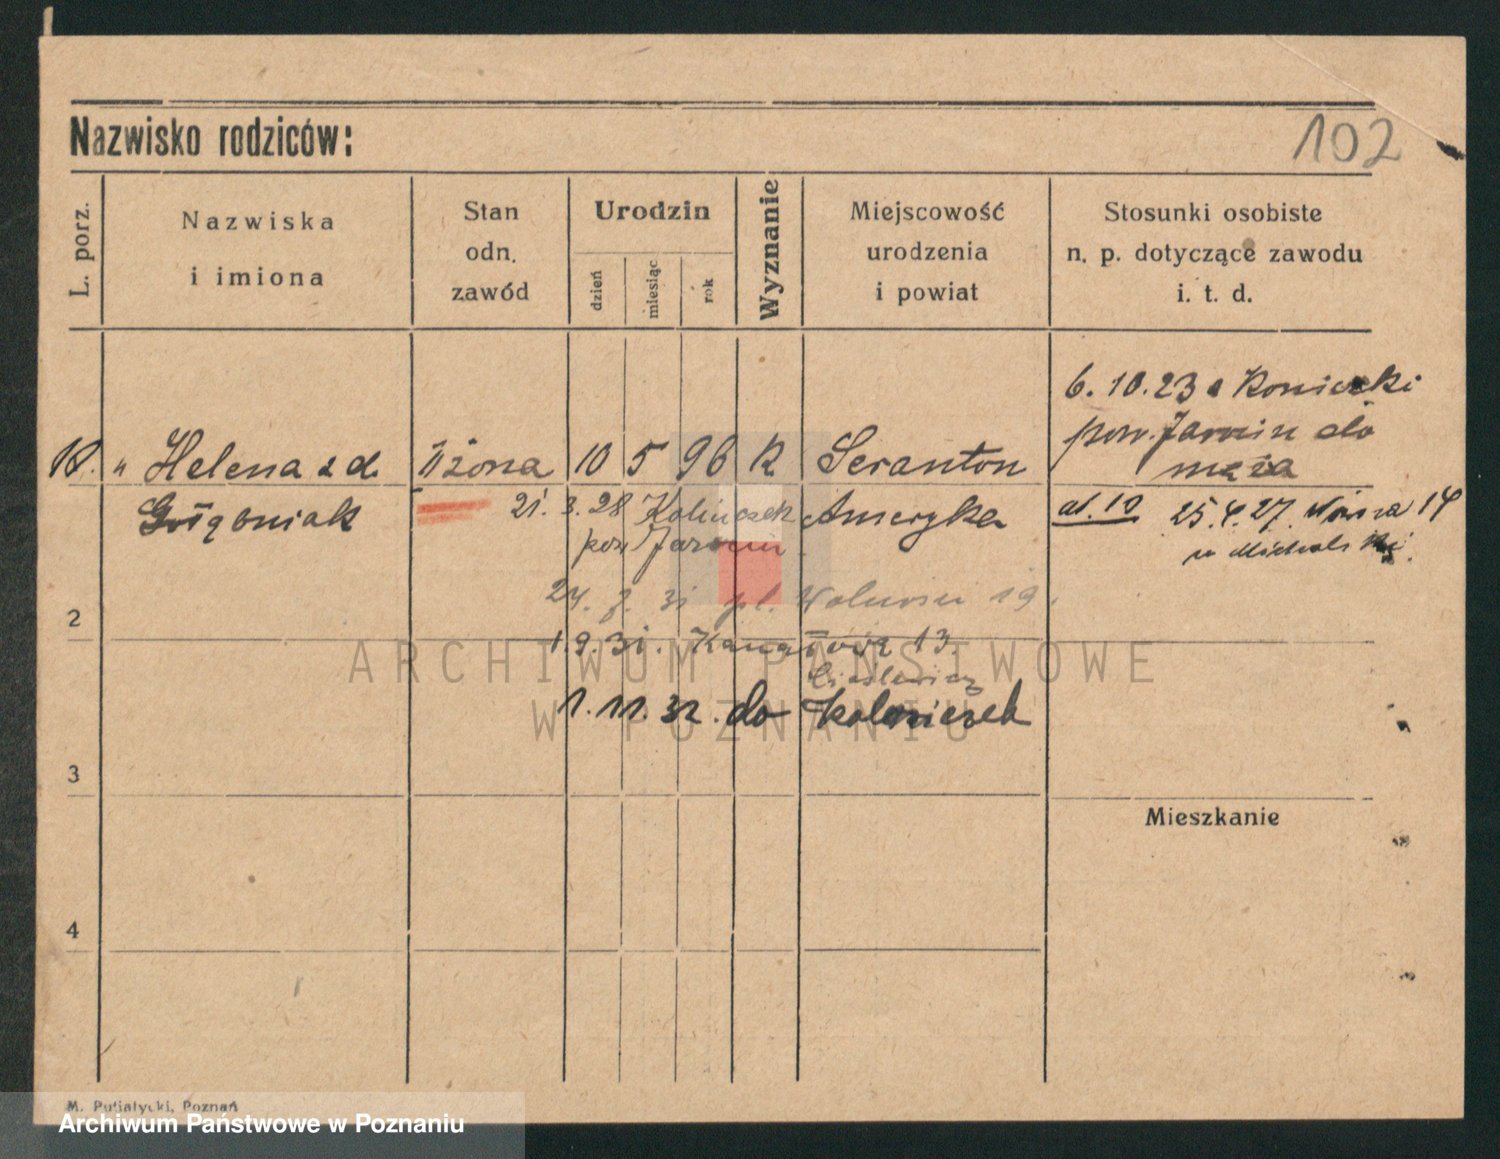 Nazwisko rodziców:
102
L. porz.
Nazwiska
i imiona
Stan
odn.
zawód
Urodzin
dzień
miesiąc
rok
Wyznanie
Miejscowość
urodzenia
i powiat
Stosunki osobiste
n. p. dotyczące zawodu
i. t. d.
6.10.23 Koniczki
pow. Jarocin do
męża
" Helena z d. żona 10 5 96 K Scranton
21. 3. 28 Ameryka
25.4.27. 14
pow Jarocin
w Michalski
2
24. 31 pl. Wolności 19.
1.9.31. 13.
1.11.32. do
3
Mieszkanie
4
M. Putiatycki, Poznań
ARCHIWUM PAŃSTWOWE
W POZNANIU
Archiwum Państwowe w Poznaniu